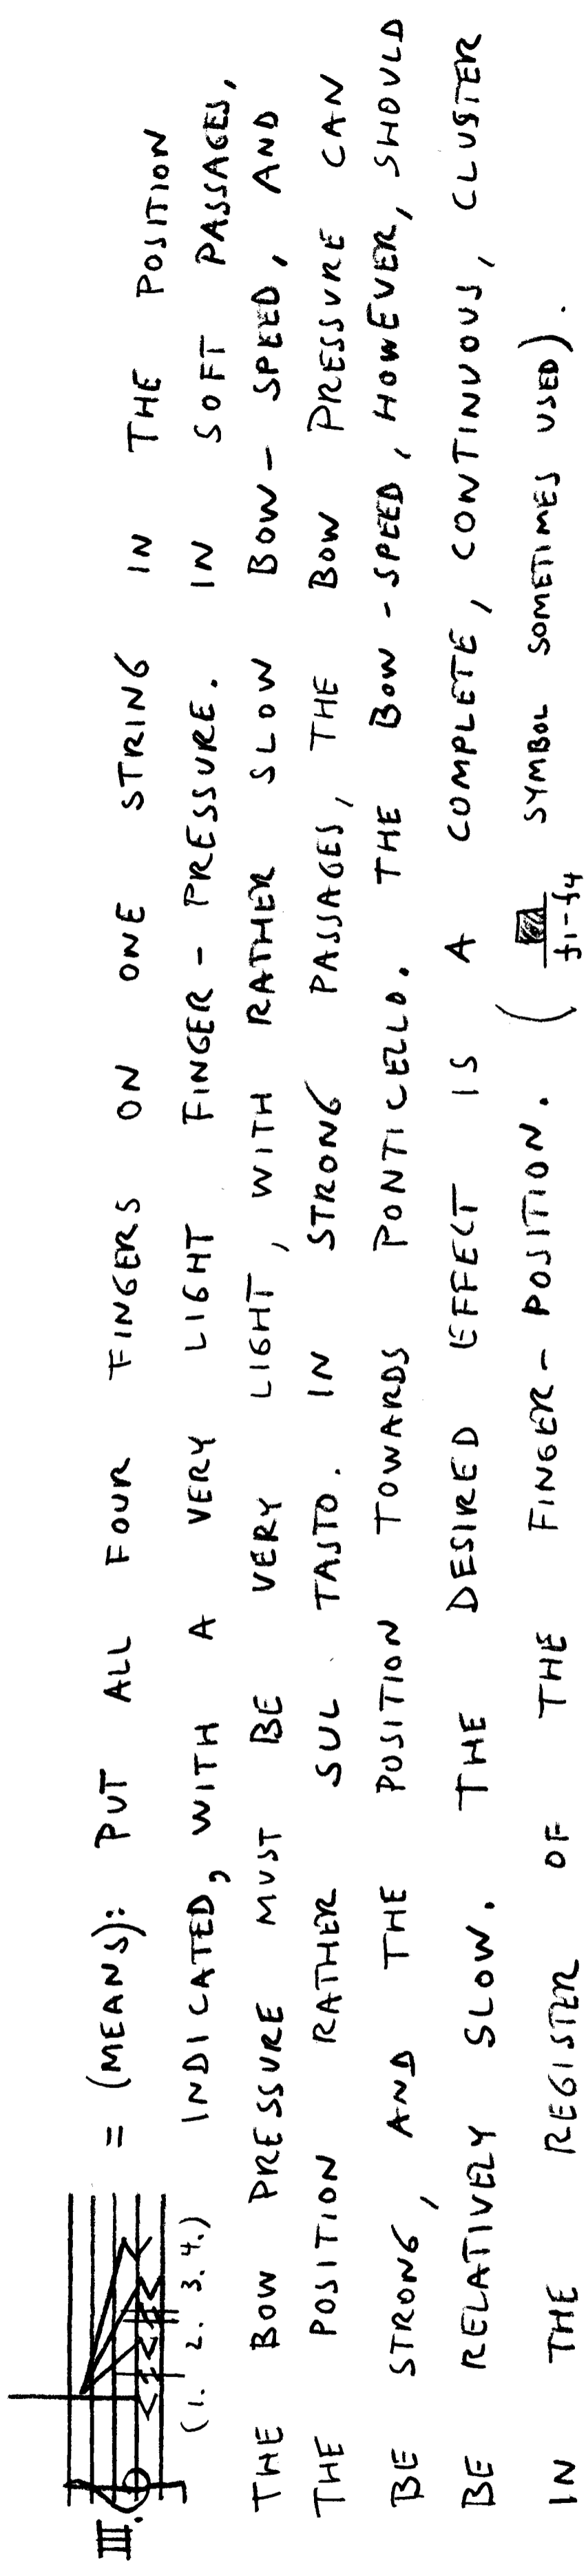 III. = (MEANS): PUT ALL FOUR FINGERS ON ONE STRING IN THE POSITION
(1. 2. 3. 4.) INDICATED, WITH A VERY LIGHT FINGER-PRESSURE. IN SOFT PASSAGES,
THE BOW PRESSURE MUST BE VERY LIGHT, WITH RATHER SLOW BOW-SPEED, AND
THE POSITION RATHER SUL TASTO. IN STRONG PASSAGES, THE BOW PRESSURE CAN
BE STRONG, AND THE POSITION TOWARDS PONTICELLO. THE BOW-SPEED, HOWEVER, SHOULD
BE RELATIVELY SLOW. THE DESIRED EFFECT IS A COMPLETE, CONTINUOUS, CLUSTER
IN THE REGISTER OF THE FINGER-POSITION. ( f1-f4 SYMBOL SOMETIMES USED).